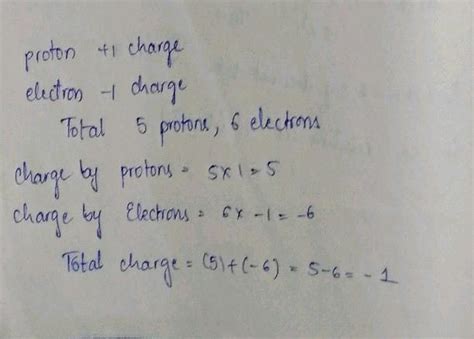 proton +1 charge
electron -1 charge
Total 5 protons, 6 electrons
charge by protons = 5x1 = 5
charge by Electrons = 6x -1 = -6
Total charge = (5)+(-6) = 5-6 = -1